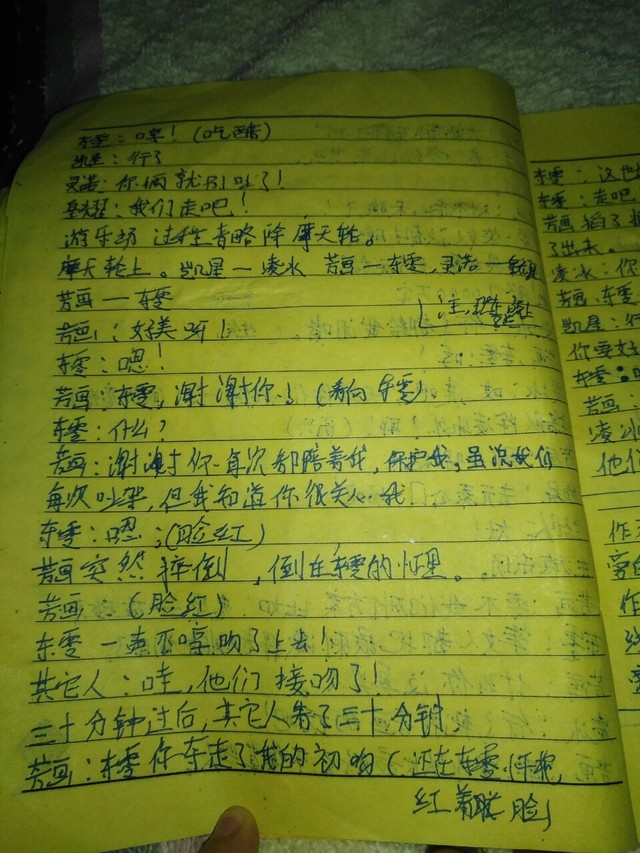 东雯：哼！（吃醋）
凯星：行了
灵浩：你俩就别吐了！
我们走吧！
游乐场 过程省略 除摩天轮。
摩天轮上。凯星一凌冰 芳画一东雯，灵浩一
芳画一东雯
注，
芳画：好美呀！
东雯：嗯！
芳画：东雯，谢谢你！（看向东雯）
东雯：什么？
芳画：谢谢你每次都陪着我，保护我，虽说我们
每次吵架，但我知道你很关心我
东雯：嗯；（脸红）
芳画突然摔倒，倒在东雯的怀里。
芳画（脸红）
东雯一声不哼吻了上去！
其它人：哇，他们接吻了！
三十分钟过后，其它人看了三十分钟，
芳画：东雯你夺走了我的初吻（还在东雯怀抱，
红着脸）
东雯：这
东雯：走吧
芳画
了出来。
凌冰：你
芳画、东雯
凯星：行
你要好
东雯：
芳画：
凌冰
他们
作
旁
作